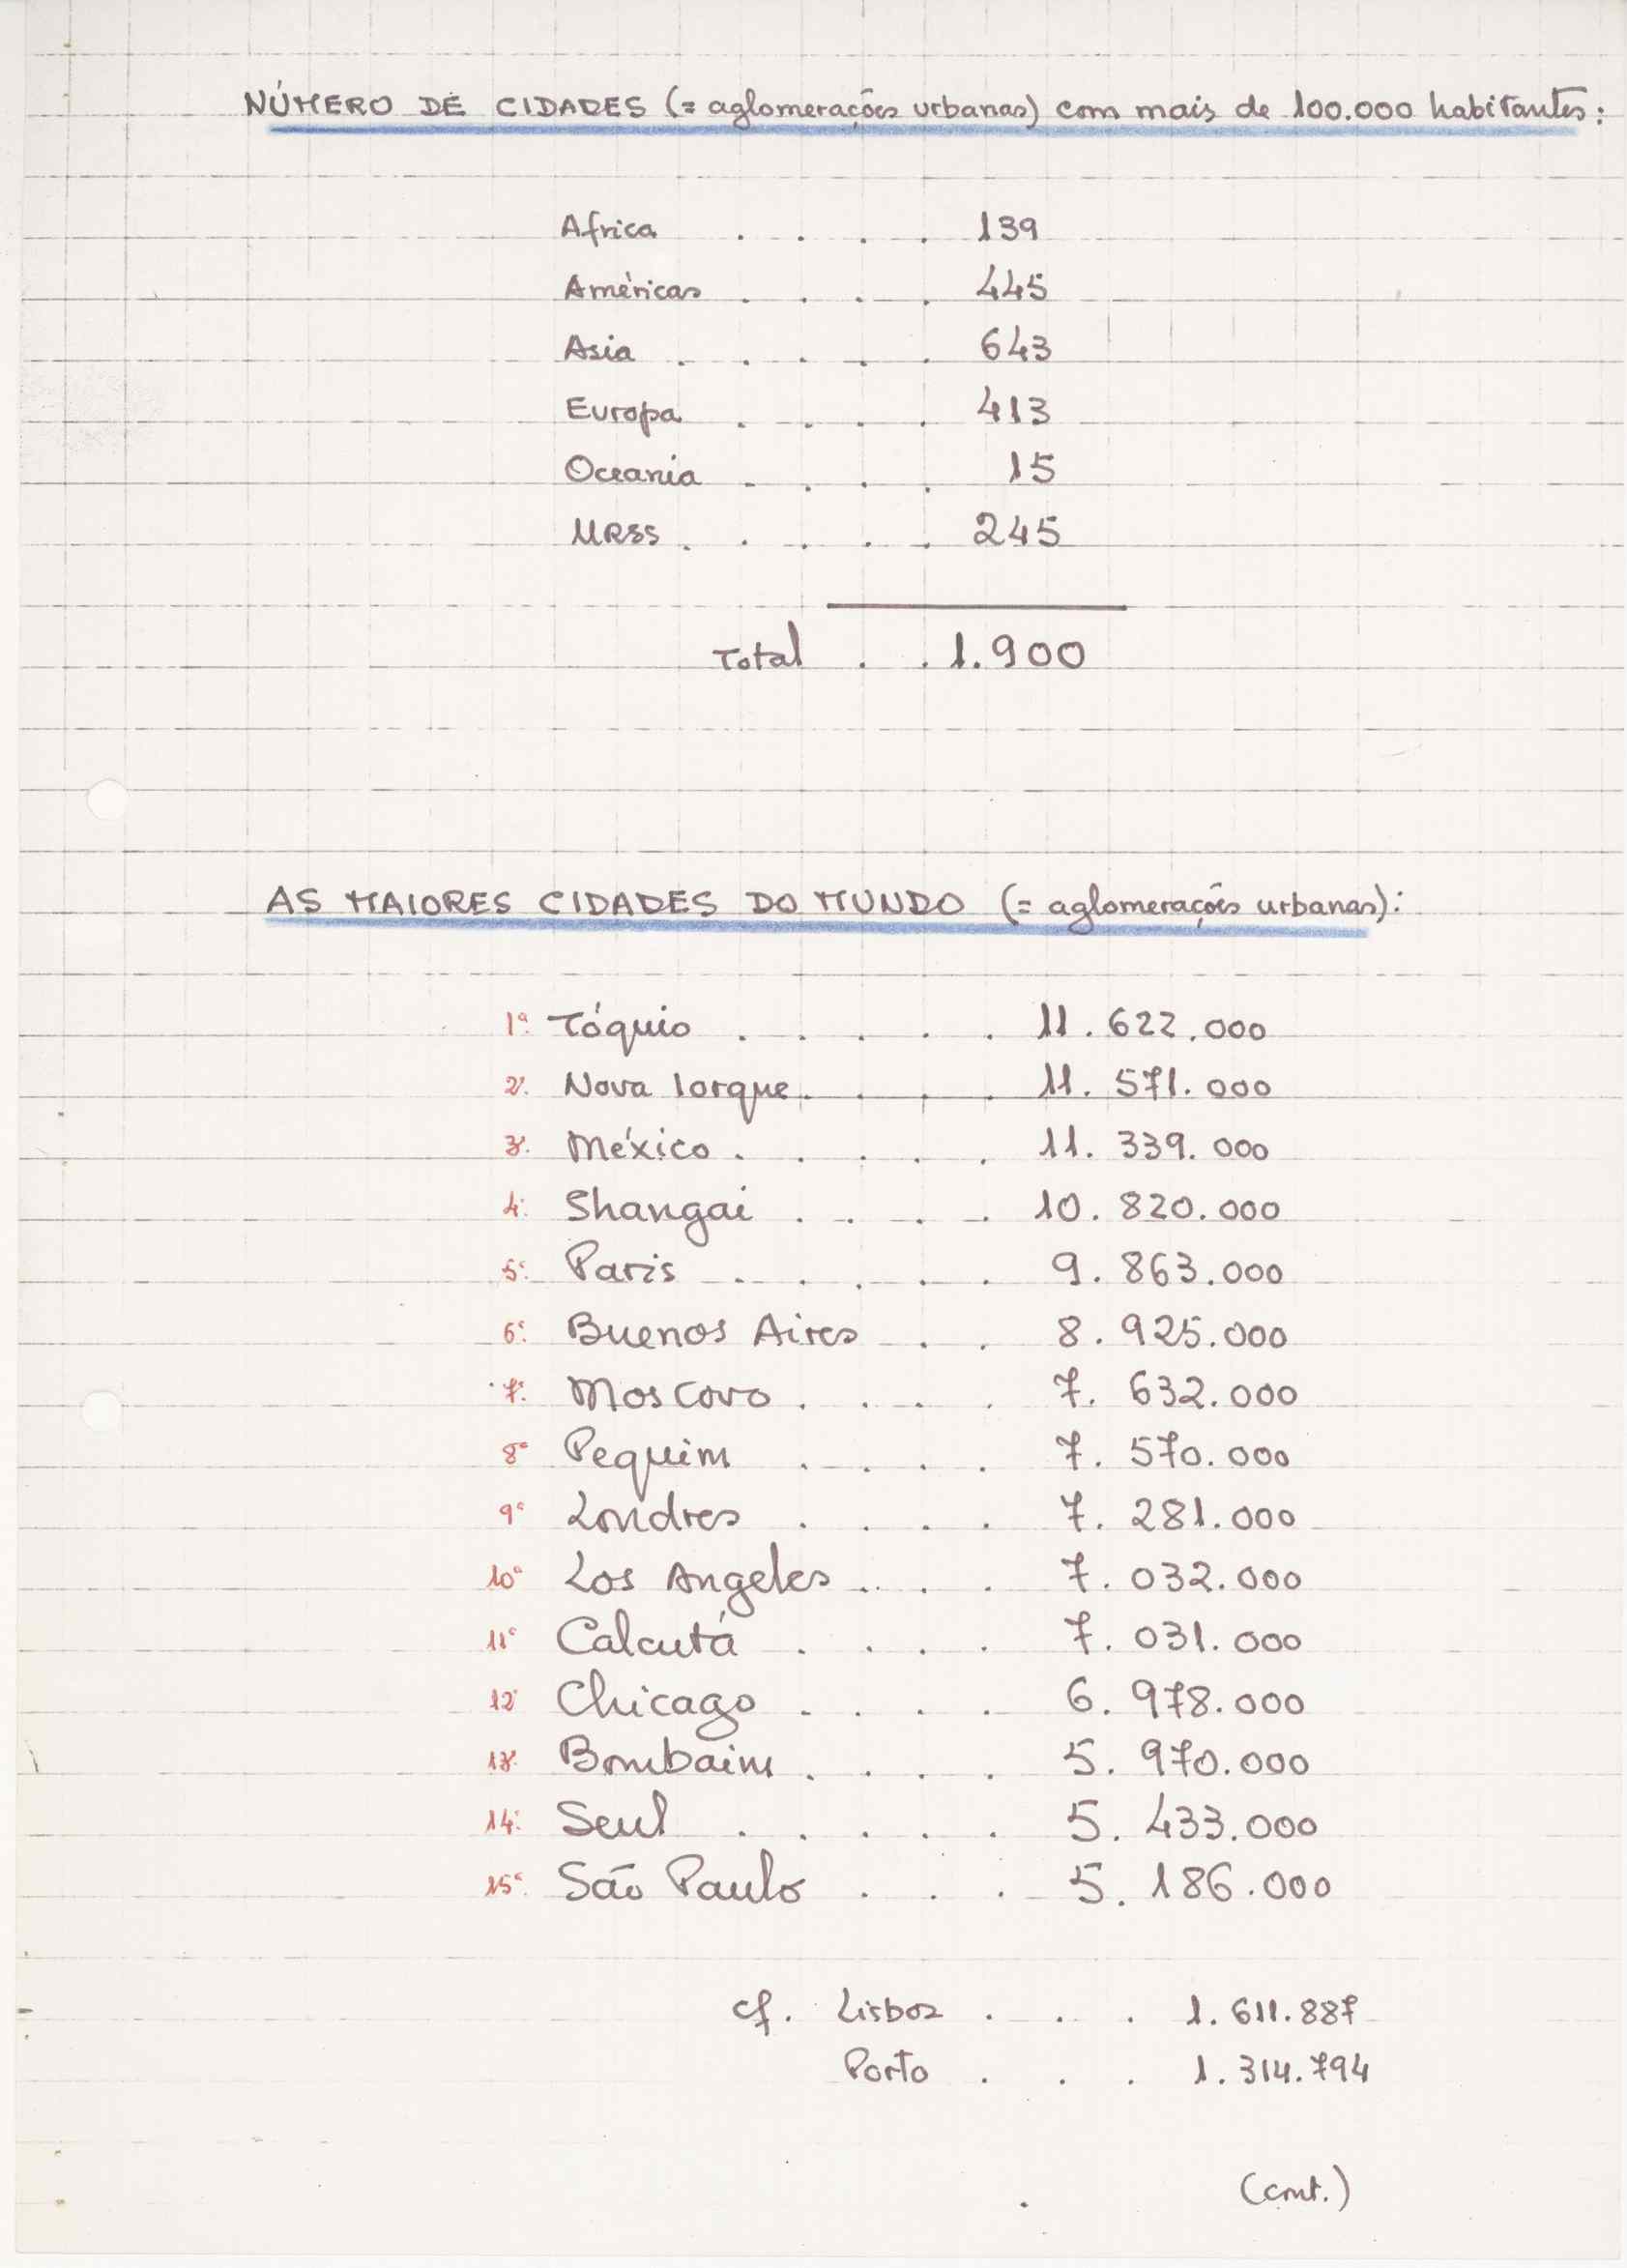 NÚMERO DE CIDADES (= aglomerações urbanas) com mais de 100.000 habitantes:
Africa . . . . 139
Américas . . . . 445
Asia . . . . . 643
Europa . . . . 413
Oceania . . . . 15
URSS . . . . . 245
Total . . 1.900
AS MAIORES CIDADES DO MUNDO (= aglomerações urbanas):
1ª Tóquio . . . . . 11.622.000
2ª Nova Iorque . . . . 11.571.000
3ª México . . . . . 11.339.000
4ª Shangai . . . . 10.820.000
5ª Paris . . . . . 9.863.000
6ª Buenos Aires . . 8.925.000
7ª Moscovo . . . . 7.632.000
8ª Pequim . . . . 7.570.000
9ª Londres . . . . 7.281.000
10ª Los Angeles . . . 7.032.000
11ª Calcutá . . . . 7.031.000
12ª Chicago . . . . 6.978.000
13ª Bombaim . . . . 5.970.000
14ª Seul . . . . . 5.433.000
15ª São Paulo . . . 5.186.000
cf. Lisboa . . . 1.611.887
Porto . . . 1.314.794
(cont.)